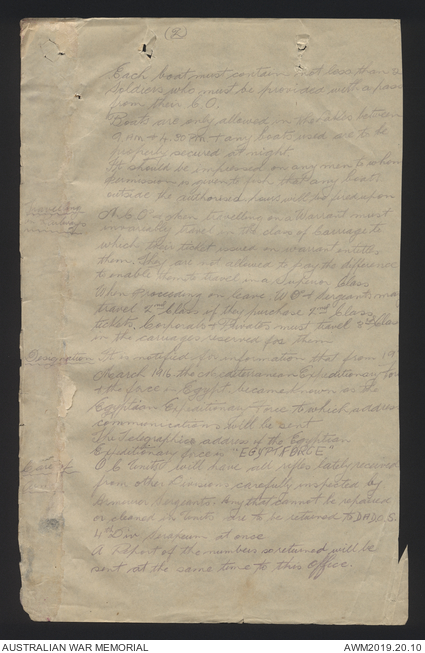 (2)
Each boat must contain not less than 2
soldiers who must be provided with a pass
from their C.O.
Boats are only allowed on the lakes between
9 am & 4.30 PM & any boats used are to be
properly secured at night.
It should be impressed on any men to whom
permission is given to fish that any boat
outside the authorised hours will be fired upon
travelling
of
N.C.O's when travelling on a Warrant must
invariably travel in the class of Carriage to
which their ticket issued on warrant entitles
them. They are not allowed to pay the difference
to enable them to travel in a superior Class
When proceeding on leave, W.O's & Sergeants may
travel 2nd Class if they purchase 2nd Class
tickets. Corporals & Privates must travel 3rd Class
in the carriages reserved for them
Designation It is notified for information that from 19th
March 1916 the Mediterranean Expeditionary Force
& the force in Egypt became known as the
Egyptian Expeditionary Force to which address
communications will be sent
The telegraphic address of the Egyptian
Expeditionary force is "EGYPTFORCE"
Care of O.C. Units will have all rifles lately received
from other Divisions carefully inspected by
Armourer Sergeants. Any that cannot be repaired
or cleaned in Units are to be returned to D.A.D.O.S.
4th Div. Serapeum at once
A Report of the numbers so returned will be
sent at the same time to this Office.
AUSTRALIAN WAR MEMORIAL
AWM2019.20.10